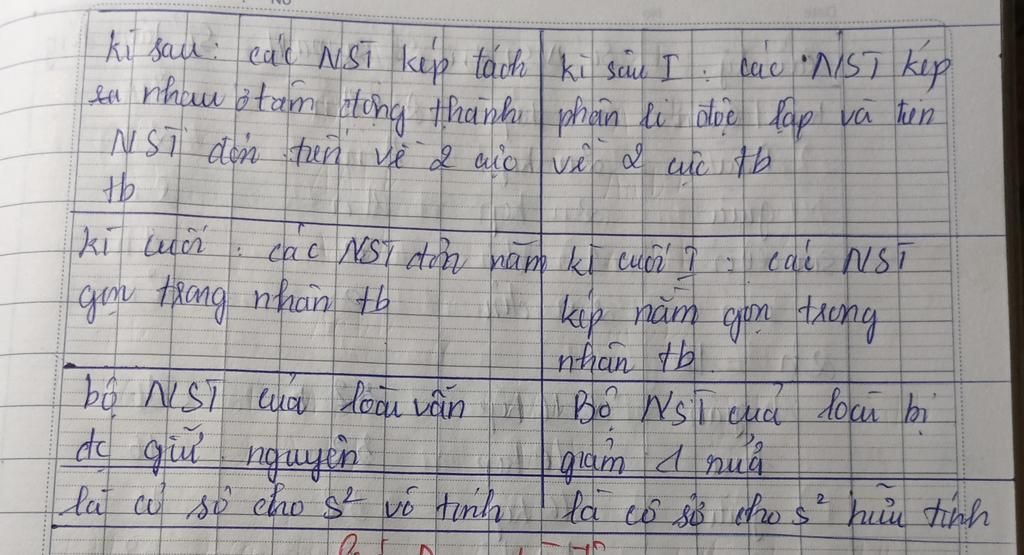 kì sau: các NST kép tách
ra nhau ở tâm động thành
NST đơn tiến về 2 cực
tb
kì sau I: các NST kép
phân li độc lập và tiến
về 2 cực tb
kì cuối: các NST đơn nằm
gọn trong nhân tb
kì cuối I: các NST
kép nằm gọn trong
nhân tb
bộ NST của loài vẫn
đc giữ nguyên
Bộ NST của loài bị
giảm 1 nửa
là cơ sở cho s² vô tính
là cơ sở cho s² hữu tính